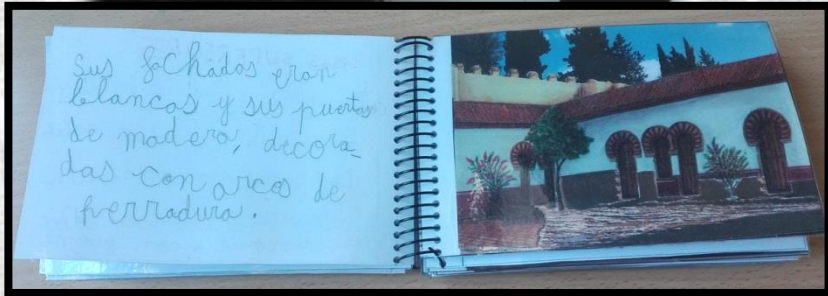 Sus fachadas eran
blancas y sus puertas
de madera, decora_
das con arcos de
herradura.